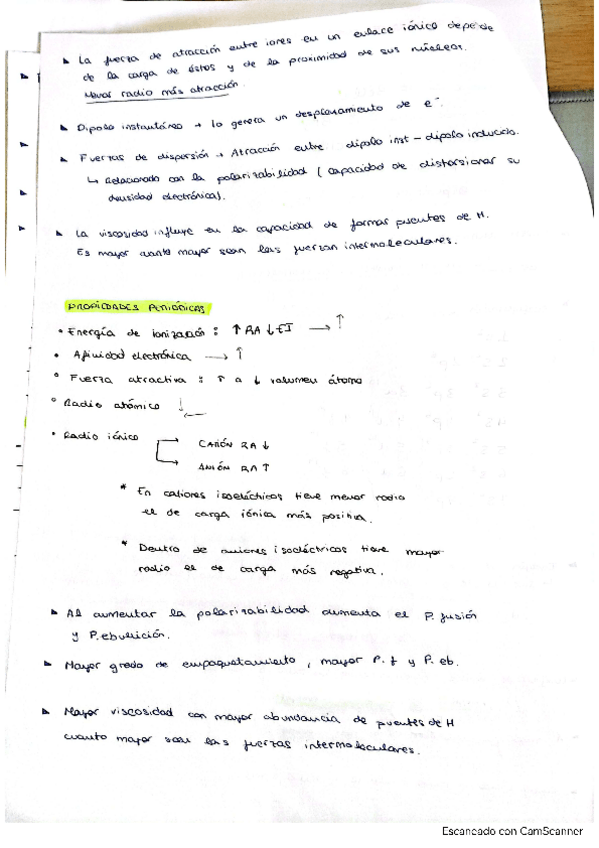 La fuerza de atracción entre iones en un enlace iónico depende
de la carga de éstos y de la proximidad de sus núcleos.
Menor radio más atracción.
Dipolo instantáneo → lo genera un desplazamiento de e⁻.
Fuerzas de dispersión → Atracción entre dipolo inst - dipolo inducido.
↳ Relacionado con la polarizabilidad (capacidad de distorsionar su
densidad electrónica).
La viscosidad influye en la capacidad de formar puentes de H.
Es mayor cuanto mayor sean las fuerzas intermoleculares.
PROPIEDADES PERIÓDICAS
• Energía de ionización : ↑ RA ↓ EI → ↑
• Afinidad electrónica → ↑
° Fuerza atractiva : ↑ a ↓ volumen átomo
° Radio atómico ↓ ←
• Radio iónico → CATIÓN RA ↓
→ ANIÓN RA ↑
* En cationes isoeléctricos tiene menor radio
el de carga iónica más positiva.
* Dentro de aniones isoeléctricos tiene mayor
radio el de carga más negativa.
Al aumentar la polarizabilidad aumenta el P. fusión
y P. ebullición.
Mayor grado de empaquetamiento, mayor P. f y P. eb.
Mayor viscosidad con mayor abundancia de puentes de H
cuanto mayor sean las fuerzas intermoleculares.
Escaneado con CamScanner